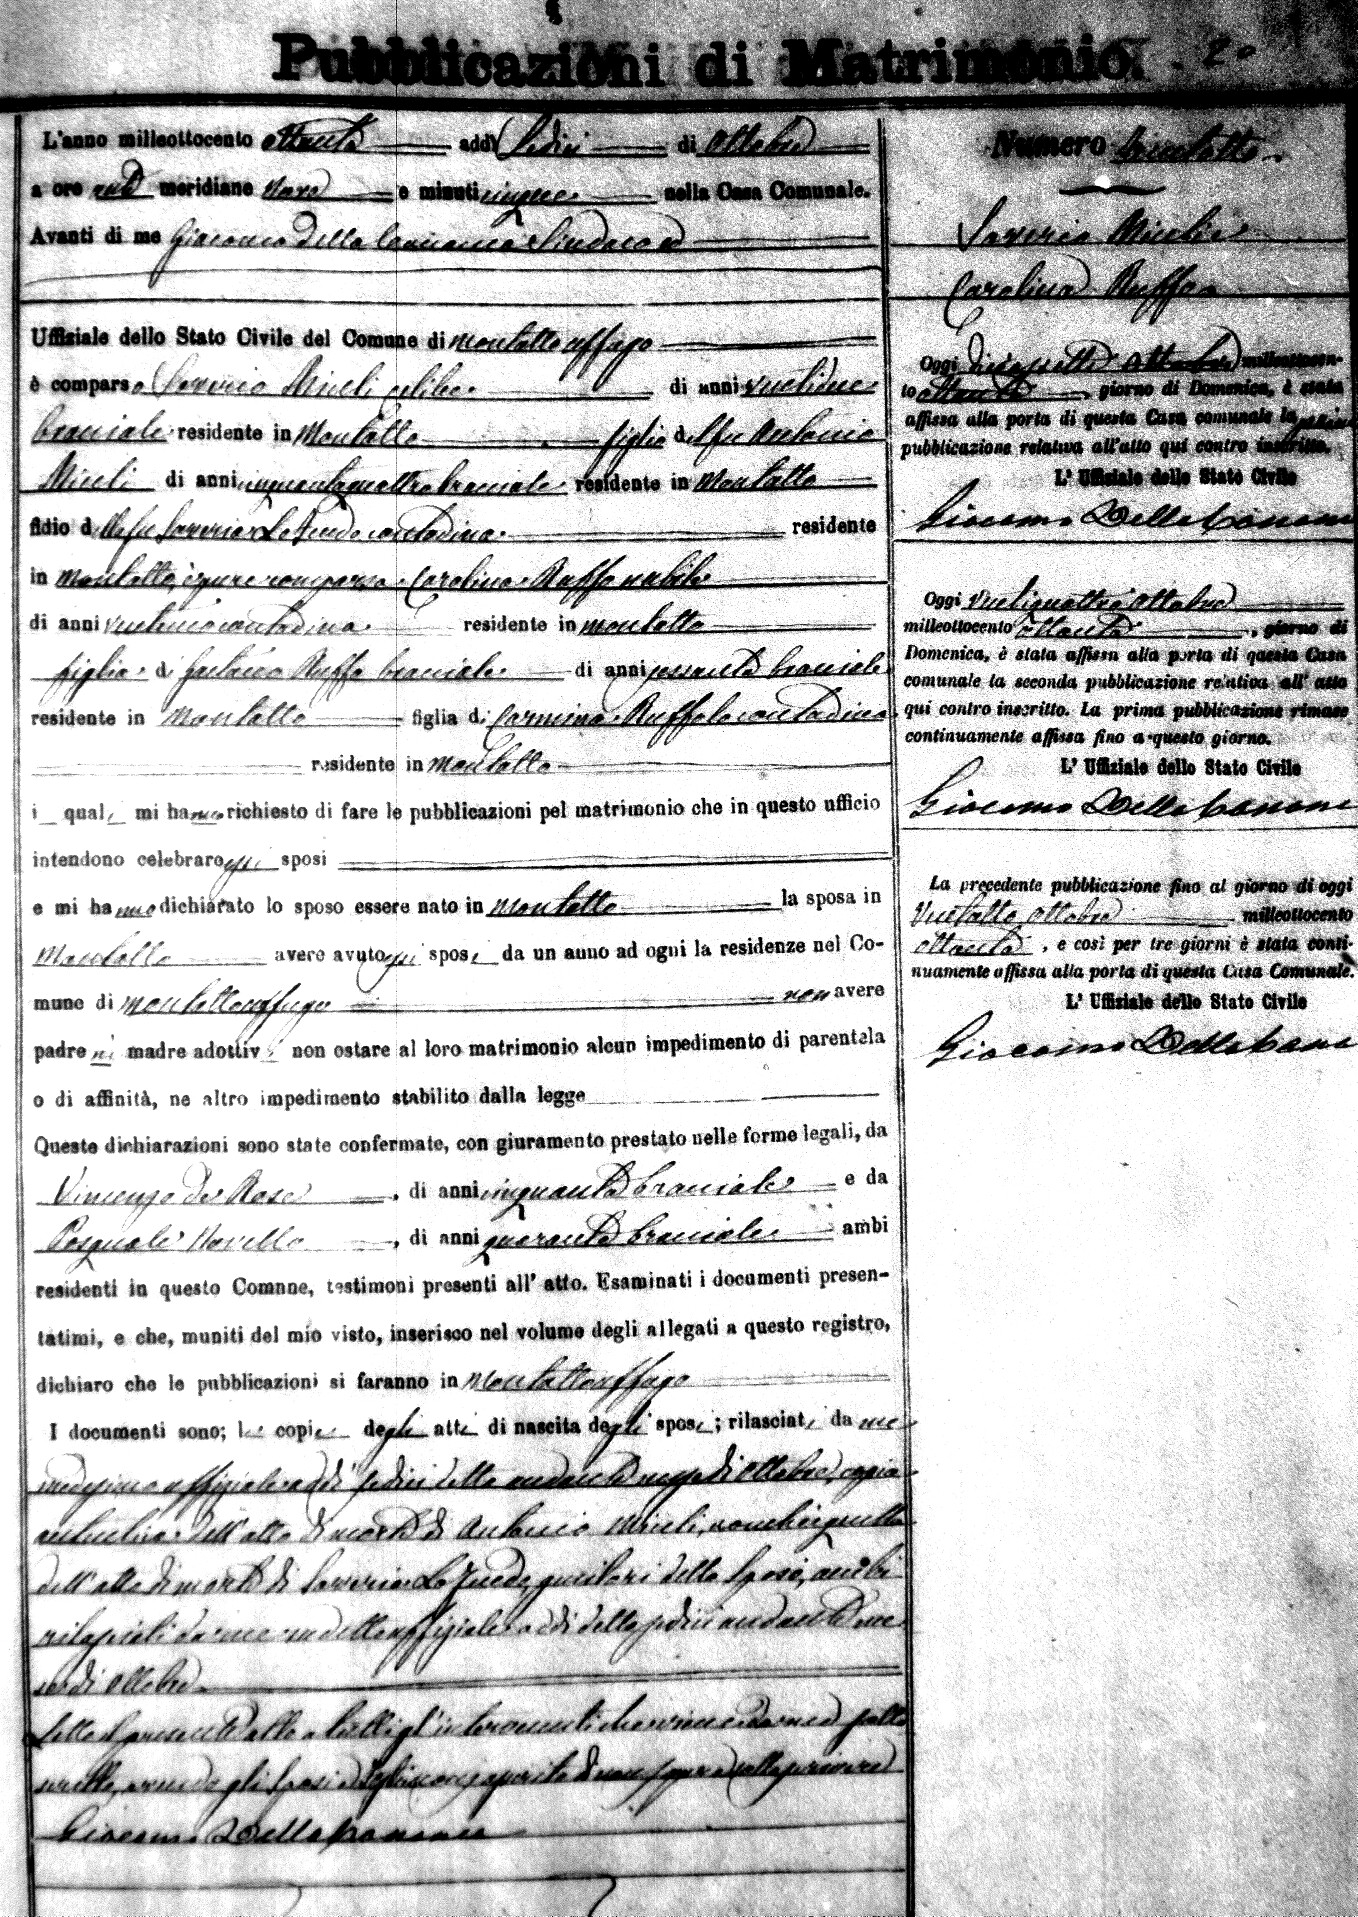 Pubblicazioni di Matrimonio.
L'anno milleottocento ottanta addì Sedici di Ottobre
a ore anti meridiane nove e minuti cinque nella Casa Comunale.
Avanti di me Giacomo Della Cananea Sindaco ed
Uffiziale dello Stato Civile del Comune di Montalto uffugo
è comparso Saverio Miceli celibe di anni
bracciale residente in Montalto figlio del fu Antonio
Miceli di anni cinquantaquattro bracciale residente in Montalto
della fu Saveria Lo Feudo contadina residente
in Montalto, è pure comparsa Carolina Ruffo nubile
di anni contadina residente in Montalto
figlia di Gaetano Ruffo bracciale di anni sessanta bracciale
residente in Montalto figlia di Carmina Ruffolo contadina
residente in Montalto
i quali mi hanno richiesto di fare le pubblicazioni pel matrimonio che in questo ufficio
intendono celebrare essi sposi
e mi hanno dichiarato lo sposo essere nato in Montalto la sposa in
Montalto avere avuto essi sposi da un anno ad ogni la residenze nel Co-
mune di Montalto uffugo non avere
padre nè madre adottivi non ostare al loro matrimonio alcun impedimento di parentela
o di affinità, ne altro impedimento stabilito dalla legge
Queste dichiarazioni sono state confermate, con giuramento prestato nelle forme legali, da
Vincenzo De Rose, di anni cinquanta bracciale e da
Pasquale Novello, di anni quaranta bracciale ambi
residenti in questo Comune, testimoni presenti all' atto. Esaminati i documenti presen-
tatimi, e che, muniti del mio visto, inserisco nel volume degli allegati a questo registro,
dichiaro che le pubblicazioni si faranno in Montalto uffugo
I documenti sono; le copie degli atti di nascita degli sposi; rilasciate da me
medesimo uffiziale addì sedici detto andante mese di Ottobre, copia
autentica dell'atto di morte di Antonio Miceli, nonché quella
dell'atto di morte di Saveria Lo Feudo, genitori dello sposo, ambi
rilasciati da me uffiziale addì detto sedici andante me
se di Ottobre
Letto il presente atto a tutti gl'intervenuti
gli sposi e
Giacomo Della Cananea
Numero
Saverio Miceli e
Carolina Ruffo
Oggi diciassette Ottobre milleottocen-
to ottanta giorno di Domenica, è stata
affissa alla porta di questa Casa comunale la prima
pubblicazione relativa all'atto qui contro inscritto.
L' Uffiziale dello Stato Civile
Giacomo Della Cananea
Oggi ventiquattro Ottobre
milleottocento ottanta, giorno di
Domenica, è stata affissa alla porta di questa Casa
comunale la seconda pubblicazione relativa all' atto
qui contro inscritto. La prima pubblicazione rimase
continuamente affissa fino a questo giorno.
L' Uffiziale dello Stato Civile
Giacomo Della Cananea
La precedente pubblicazione fino al giorno di oggi
Ventotto Ottobre milleottocento
ottanta, e così per tre giorni è stata conti-
nuamente affissa alla porta di questa Casa Comunale.
L' Uffiziale dello Stato Civile
Giacomo Della Cananea